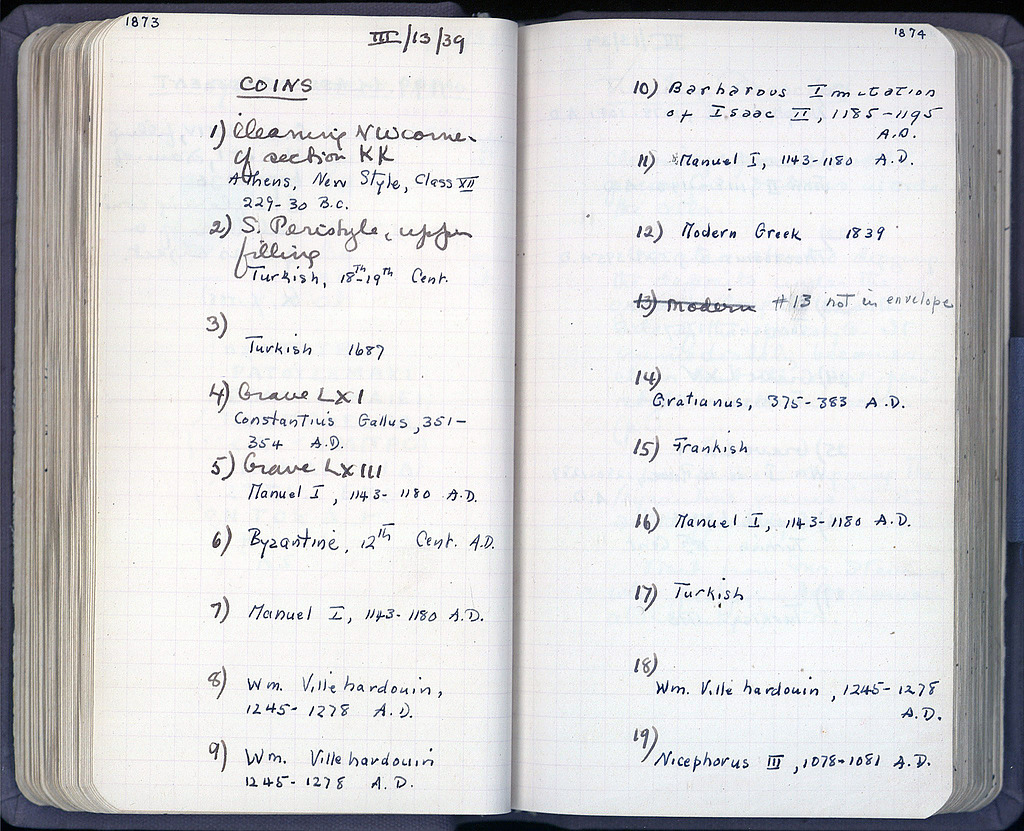 1873
III/13/39
COINS
1) Cleaning NW corner
of section KK
Athens, New Style, Class XII
229-30 B.C.
2) S. Peristyle, upper
filling
Turkish, 18th-19th Cent.
3)
Turkish 1687
4) Grave LXI
Constantius Gallus, 351-
354 A.D.
5) Grave LXIII
Manuel I, 1143-1180 A.D.
6) Byzantine, 12th Cent. A.D.
7) Manuel I, 1143-1180 A.D.
8) Wm. Villehardouin,
1245-1278 A.D.
9) Wm. Villehardouin
1245-1278 A.D.
1874
10) Barbarous Imitation
of Isaac II, 1185-1195
A.D.
11) Manuel I, 1143-1180 A.D.
12) Modern Greek 1839
13) Modern #13 not in envelope
14)
Gratianus, 375-383 A.D.
15) Frankish
16) Manuel I, 1143-1180 A.D.
17) Turkish
18)
Wm. Villehardouin, 1245-1278
A.D.
19)
Nicephorus III, 1078-1081 A.D.